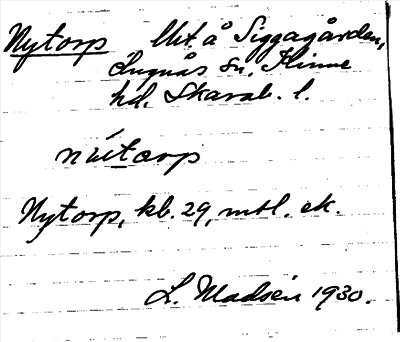 Nytorp Utf. å Siggagården,
Ingnås sn. Kinne
hd. Skarab. l.
nútorp
Nytorp, kb. 29, mtl. ek.
L. Madsén 1930.